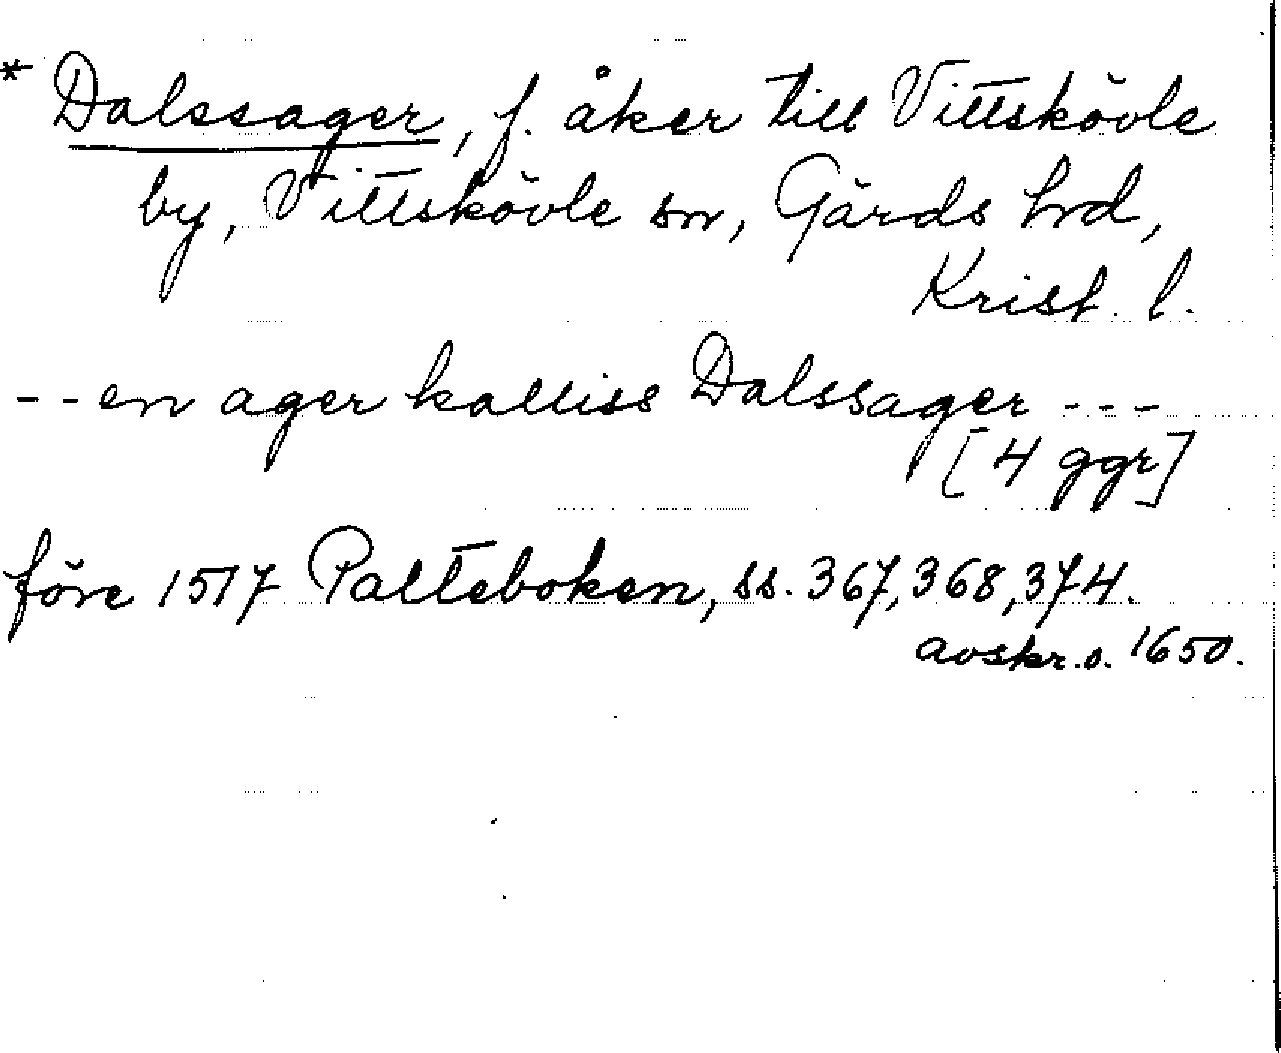 * Dalssager, f. åker till Vittskövle
by, Vittskövle sn, Gärds hrd,
Krist. l.
-- en ager kalliss Dalssager ---
[4 ggr]
före 1517 Palteboken, ss. 367, 368, 374.
avskr. o. 1650.